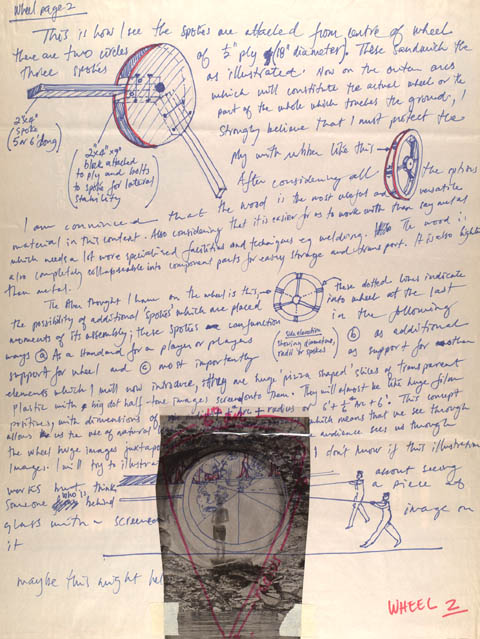 Wheel page 2
This is how I see the spokes are attached from centre of wheel
there are two circles of ½" ply (18" diameter). These sandwich the
three spokes as illustrated. Now on the outer arcs
which will constitute the actual wheel or the
part of the whole which touches the ground, I
strongly believe that I must protect the
ply with rubber like this
2"x4"
spoke
5 or 6' long
2"x4"x9"
block attached
to ply and bolts
to spoke for lateral
stability
After considering all the options
I am convinced that the wood is the most useful and versatile
material in this content. Also considering that it is easier for us to work with than say metal
which needs a lot more specialised facilities and techniques eg welding. The wood is
also completely collapsable into component parts for easy storage and transport. It is also lighter
than metal.
The other thought I have on the wheel is this,
these dotted lines indicate
the possibility of additional spokes which are placed into wheel at the last
moments of its assembly; these spokes conjunction in the following
ways (a) As a standard for a player or players (b) as additional
support for wheel and (c) most importantly as support for another
Side elevation
showing diameter,
radii or spokes
elements which I will now introduce, they are huge 'pizza shaped' slices of transparent
plastic with big dot half-tone images screened onto them. They will almost be like huge film
positives, with dimensions of radius or 6' + ½ arc + 6'. This concept
allows us the use of natural which means that we see through
the wheel huge images juxtapo audience sees us through
images. I will try to illustrat I don't know if this illustration
works but think about seeing
someone who is behind a piece of
glass with a screened image on
it
maybe this might hel
WHEEL 2